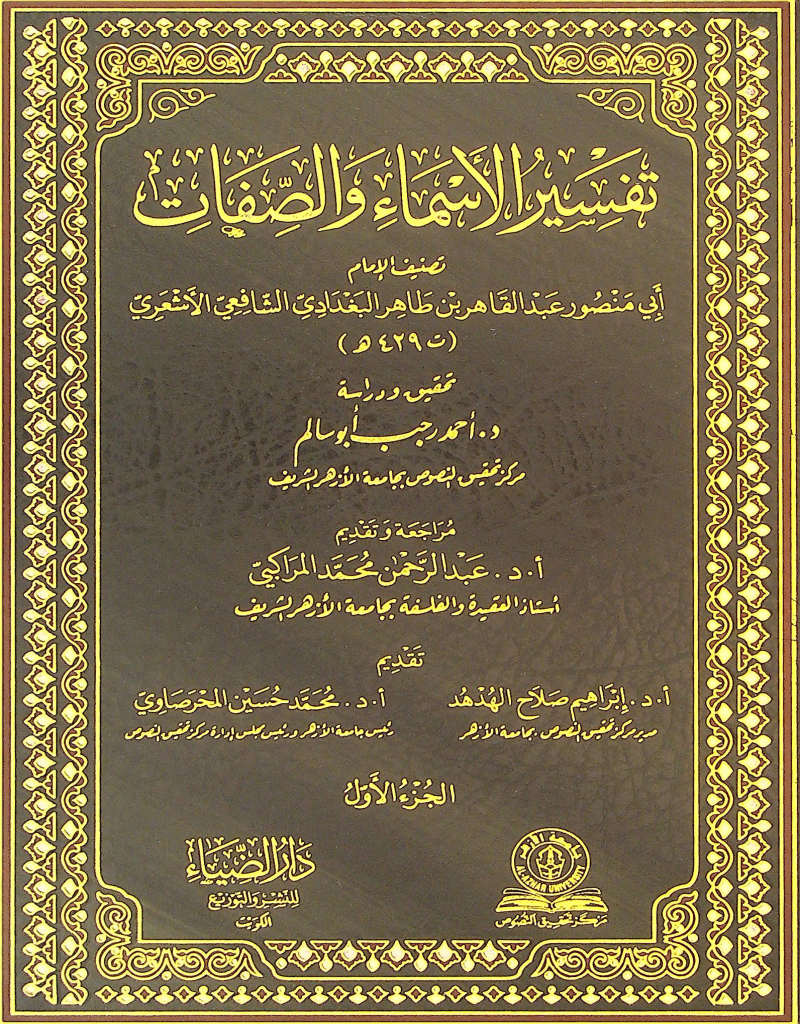 تَفْسِيرُ الأَسْمَاءِ وَالصِّفَاتِ
تصنيف الإمام
أَبِي مَنْصُور عَبْد القَاهِر بْن طَاهِر البَغْدَادِيّ الشَّافِعِيّ الأَشْعَرِيّ
(ت ٤٢٩ هـ)
تحقيق ودراسة
د. أحمد رجب أبو سالم
مركز تحقيق النصوص بجامعة الأزهر الشريف
مُرَاجَعَة وَتَقْدِيم
أ.د. عَبْد الرَّحْمٰن مُحَمَّد المَرَاكِبِيّ
أستاذ العقيدة والفلسفة بجامعة الأزهر الشريف
تَقْدِيم
أ.د. إِبْرَاهِيم صَلَاح الهُدْهُد
مدير مركز تحقيق النصوص بجامعة الأزهر
أ.د. مُحَمَّد حُسَيْن المَحْرَصَاوِيّ
رئيس جامعة الأزهر ورئيس مجلس إدارة مركز تحقيق النصوص
الجُزْءُ الأَوَّلُ
جامعة الأزهر
AL-AZHAR UNIVERSITY
مركز تحقيق النصوص
دَارُ الضِّيَاءِ
لِلنَّشْرِ وَالتَّوْزِيعِ
الكويت